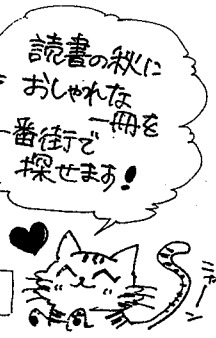 読書の秋に
おしゃれな
一冊を
一番街で
探せます!
ニャーン